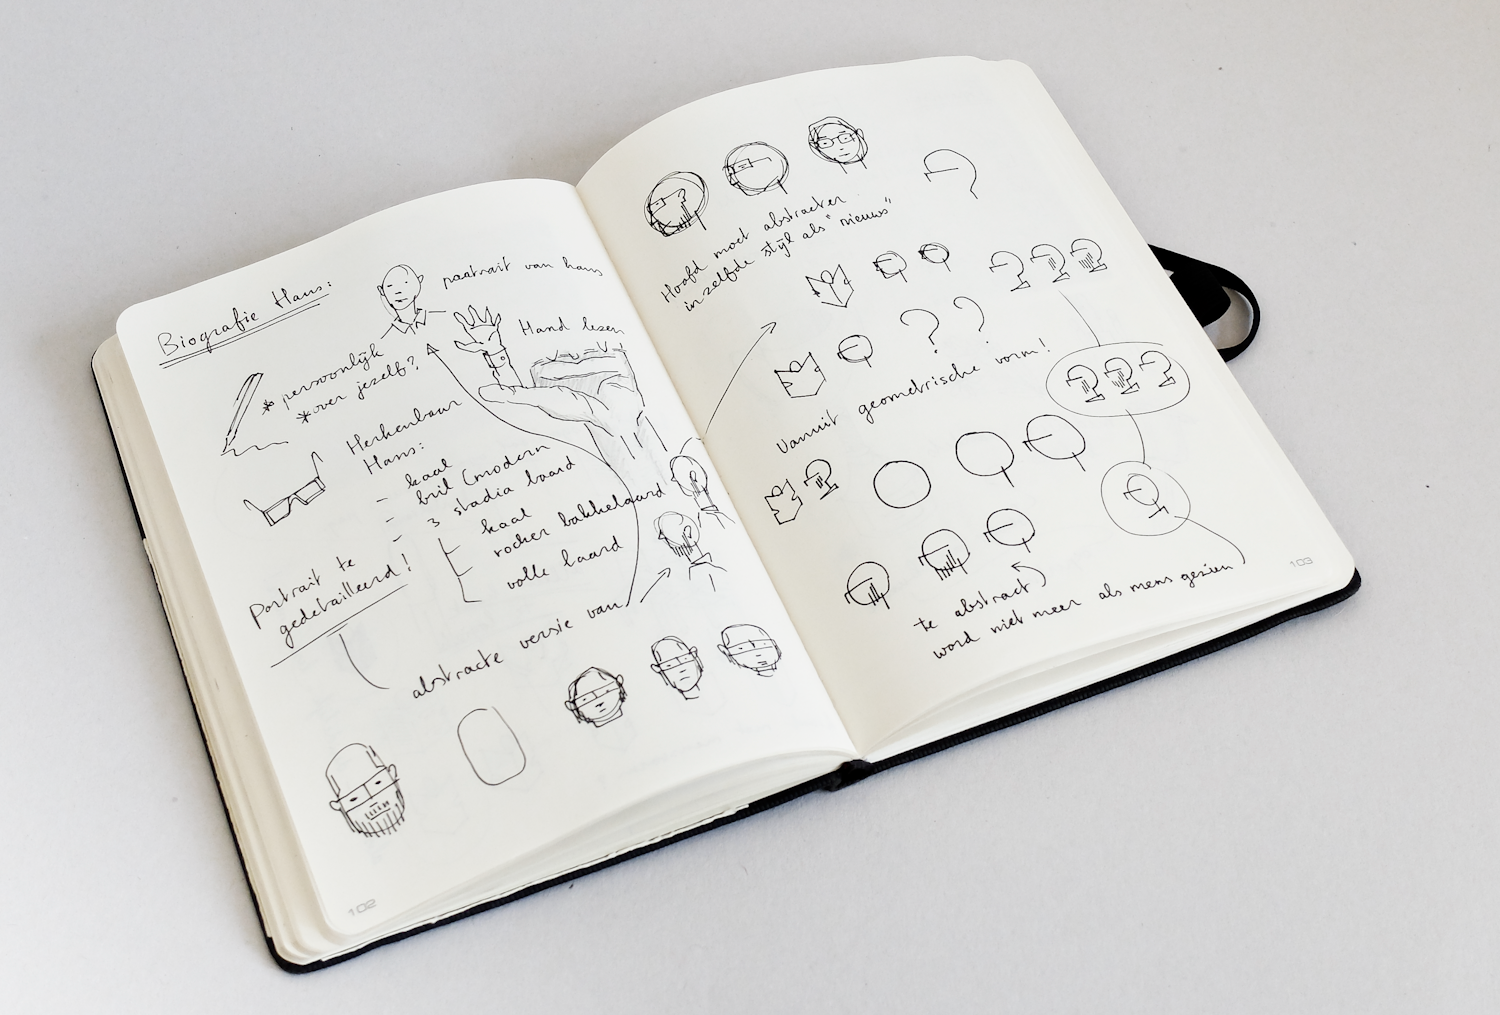 Biografie Hans:
portrait van hans
Hand lezen
* persoonlijk
* over jezelf?
Herkenbaar
Hans:
- kaal
- bril (modern
- 3 stadia baard
kaal
rocker bakkebaard
volle baard
Portrait te
gedetailleerd!
abstracte versie van
102
Hoofd moet abstracter
in zelfde stijl als "nieuws"
? ?
Vanuit geometrische vorm!
te abstract
word niet meer als mens gezien
103